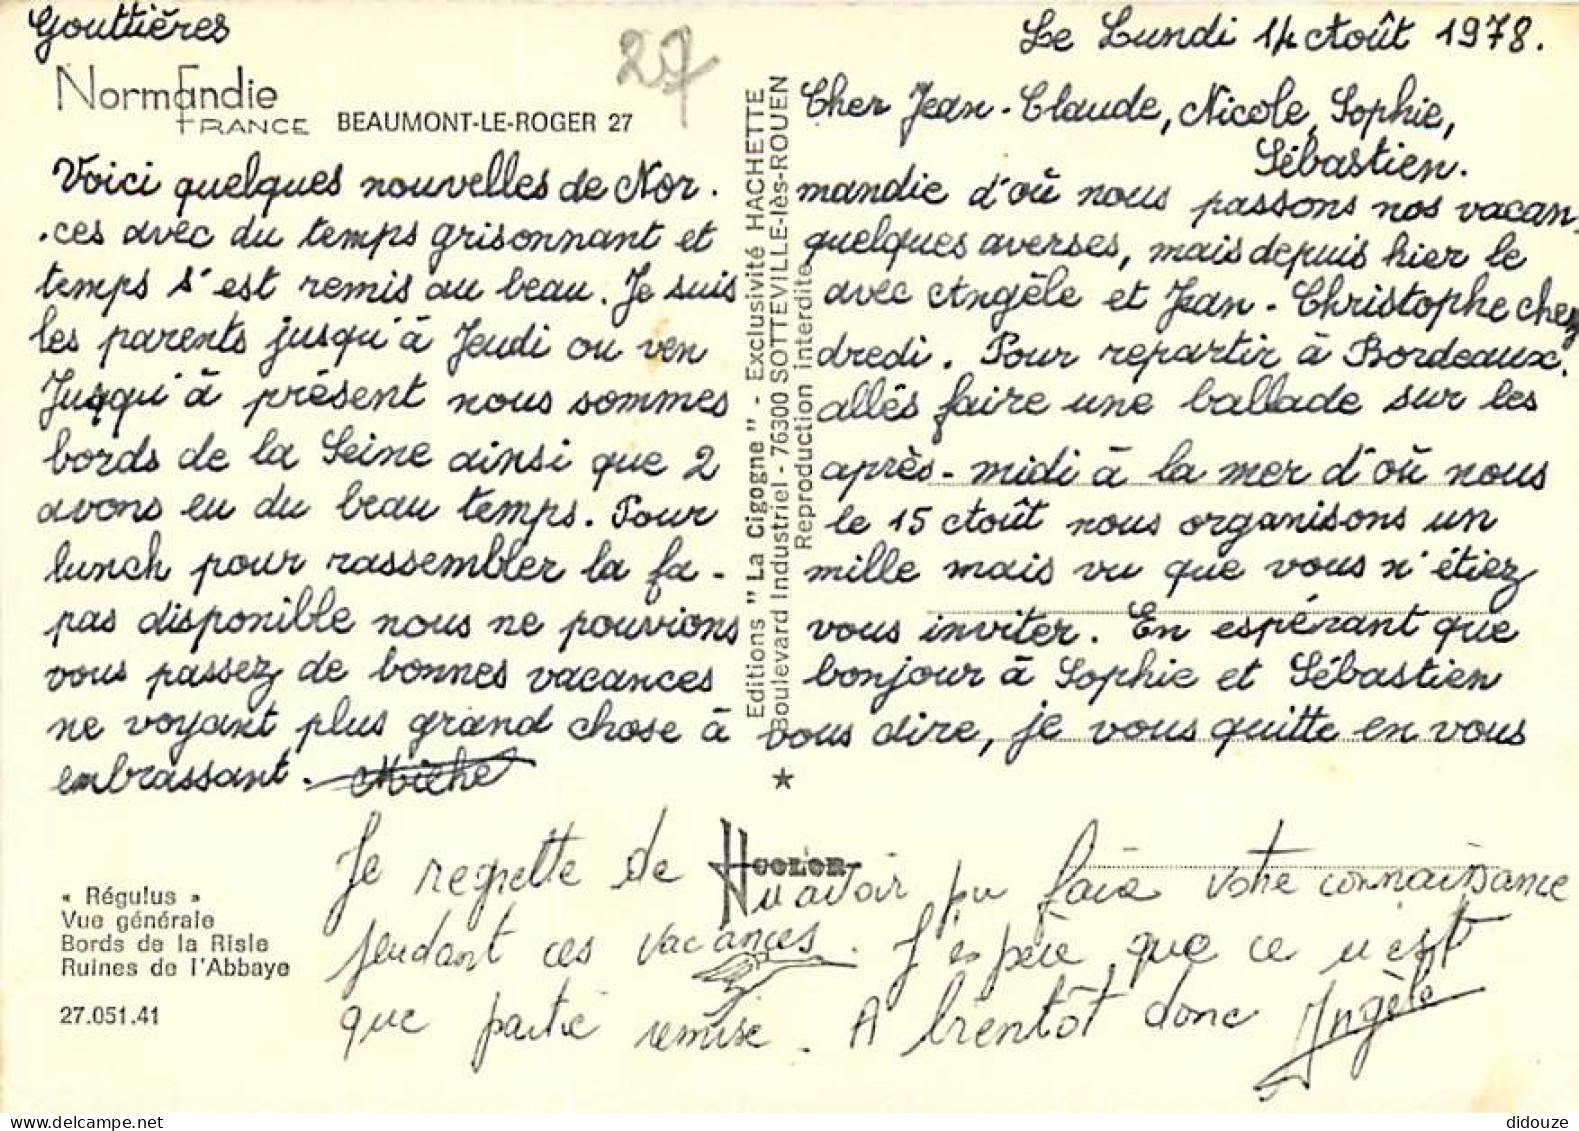 Gouttières
Le Lundi 14 Août 1978.
27
Normandie
FRANCE
BEAUMONT-LE-ROGER 27
Cher Jean-Claude, Nicole, Sophie,
Sébastien.
Voici quelques nouvelles de Nor. mandie d'où nous passons nos vacan.
.ces avec du temps grisonnant et quelques averses, mais depuis hier le
temps s'est remis au beau. Je suis avec Angèle et Jean-Christophe chez
les parents jusqu'à Jeudi ou ven dredi. Pour repartir à Bordeaux.
Jusqu'à présent nous sommes allés faire une ballade sur les
bords de la Seine ainsi que 2 après-midi à la mer d'où nous
avons eu du beau temps. Pour le 15 Août nous organisons un
lunch pour rassembler la fa- mille mais vu que vous n'étiez
pas disponible nous ne pouvions vous inviter. En espérant que
vous passez de bonnes vacances bonjour à Sophie et Sébastien
ne voyant plus grand chose à vous dire, je vous quitte en vous
embrassant. Miche
Editions "La Cigogne" - Exclusivité HACHETTE
Boulevard Industriel - 76300 SOTTEVILLE-lès-ROUEN
Reproduction interdite
COLOR
Je regrette de n'avoir pu faire votre connaissance
pendant ces vacances. J'espère que ce n'est
que partie remise. A bientôt donc Angèle
« Régulus »
Vue générale
Bords de la Risle
Ruines de l'Abbaye
27.051.41
didouze